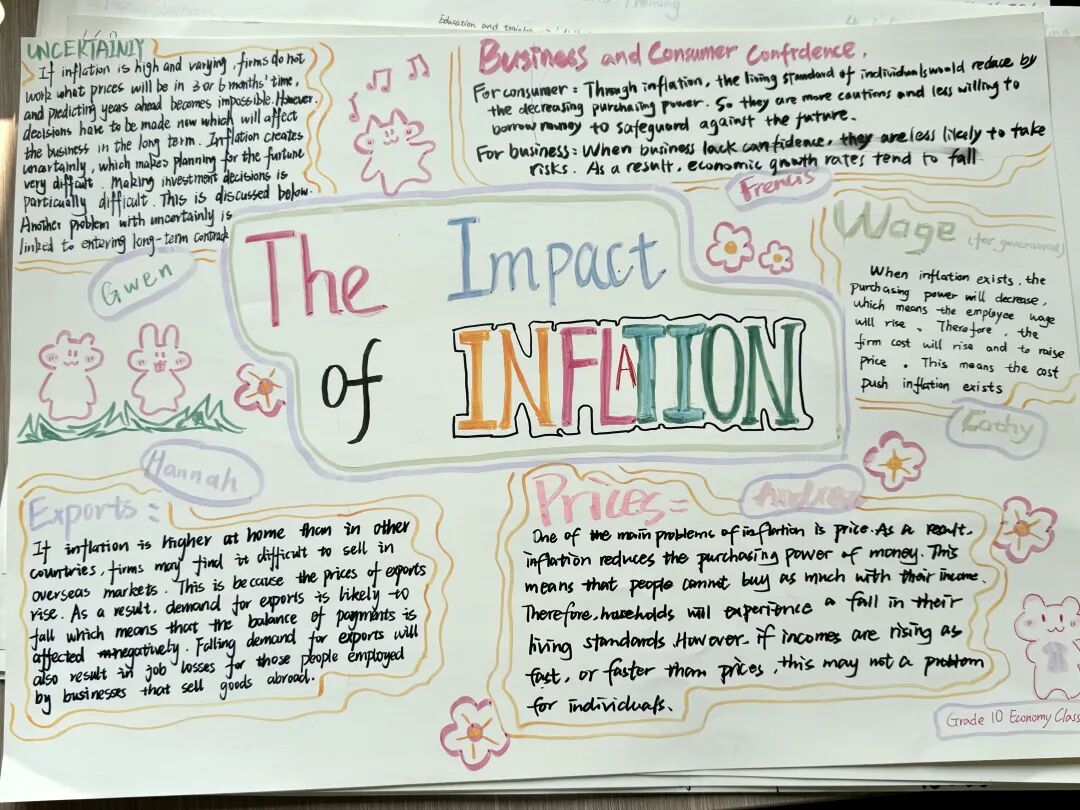 Education and
Training
UNCERTAINIY
If inflation is high and varying, firms do not
work what prices will be in 3 or 6 months' time,
and predicting years ahead becomes impossible. However.
decisions have to be made now which will affect
the business in the long term. Inflation creates
uncertainly, which makes planning for the furtune
very difficult. Making investment decisions is
particually difficult. This is discussed below.
Another problem with uncertainly is
linked to entering long-term contrack
Gwen
Business and Consumer Confidence.
For consumer: Through inflation, the living standard of individuals would reduce by
the decreasing purchasing power. So they are more cautions and less willing to
borrow money to safeguard against the future.
For business: When business lack confidence, they are less likely to take
risks. As a result, economic growth rates tend to fall
Francis
The Impact
of INFLATION
Wage (for government)
When inflation exists, the
purchasing power will decrease,
which means the employee wage
will rise. Therefore, the
firm cost will rise and to raise
price. This means the cost
push inflation exists
Cathy
Hannah
Exports:
If inflation is higher at home than in other
countries, firms may find it difficult to sell in
overseas markets. This is because the prices of exports
rise. As a result, demand for exports is likely to
fall which means that the balance of payments is
affected negatively. Falling demand for exports will
also result in job losses for those people employed
by businesses that sell goods abroad.
Prices:
Andrea
One of the main problems of inflation is price. As a result,
inflation reduces the purchasing power of money. This
means that people cannot buy as much with their income.
Therefore, households will experience a fall in their
living standards. However, if incomes are rising as
fast, or faster than prices, this may not a problem
for individuals.
Grade 10 Economy Class